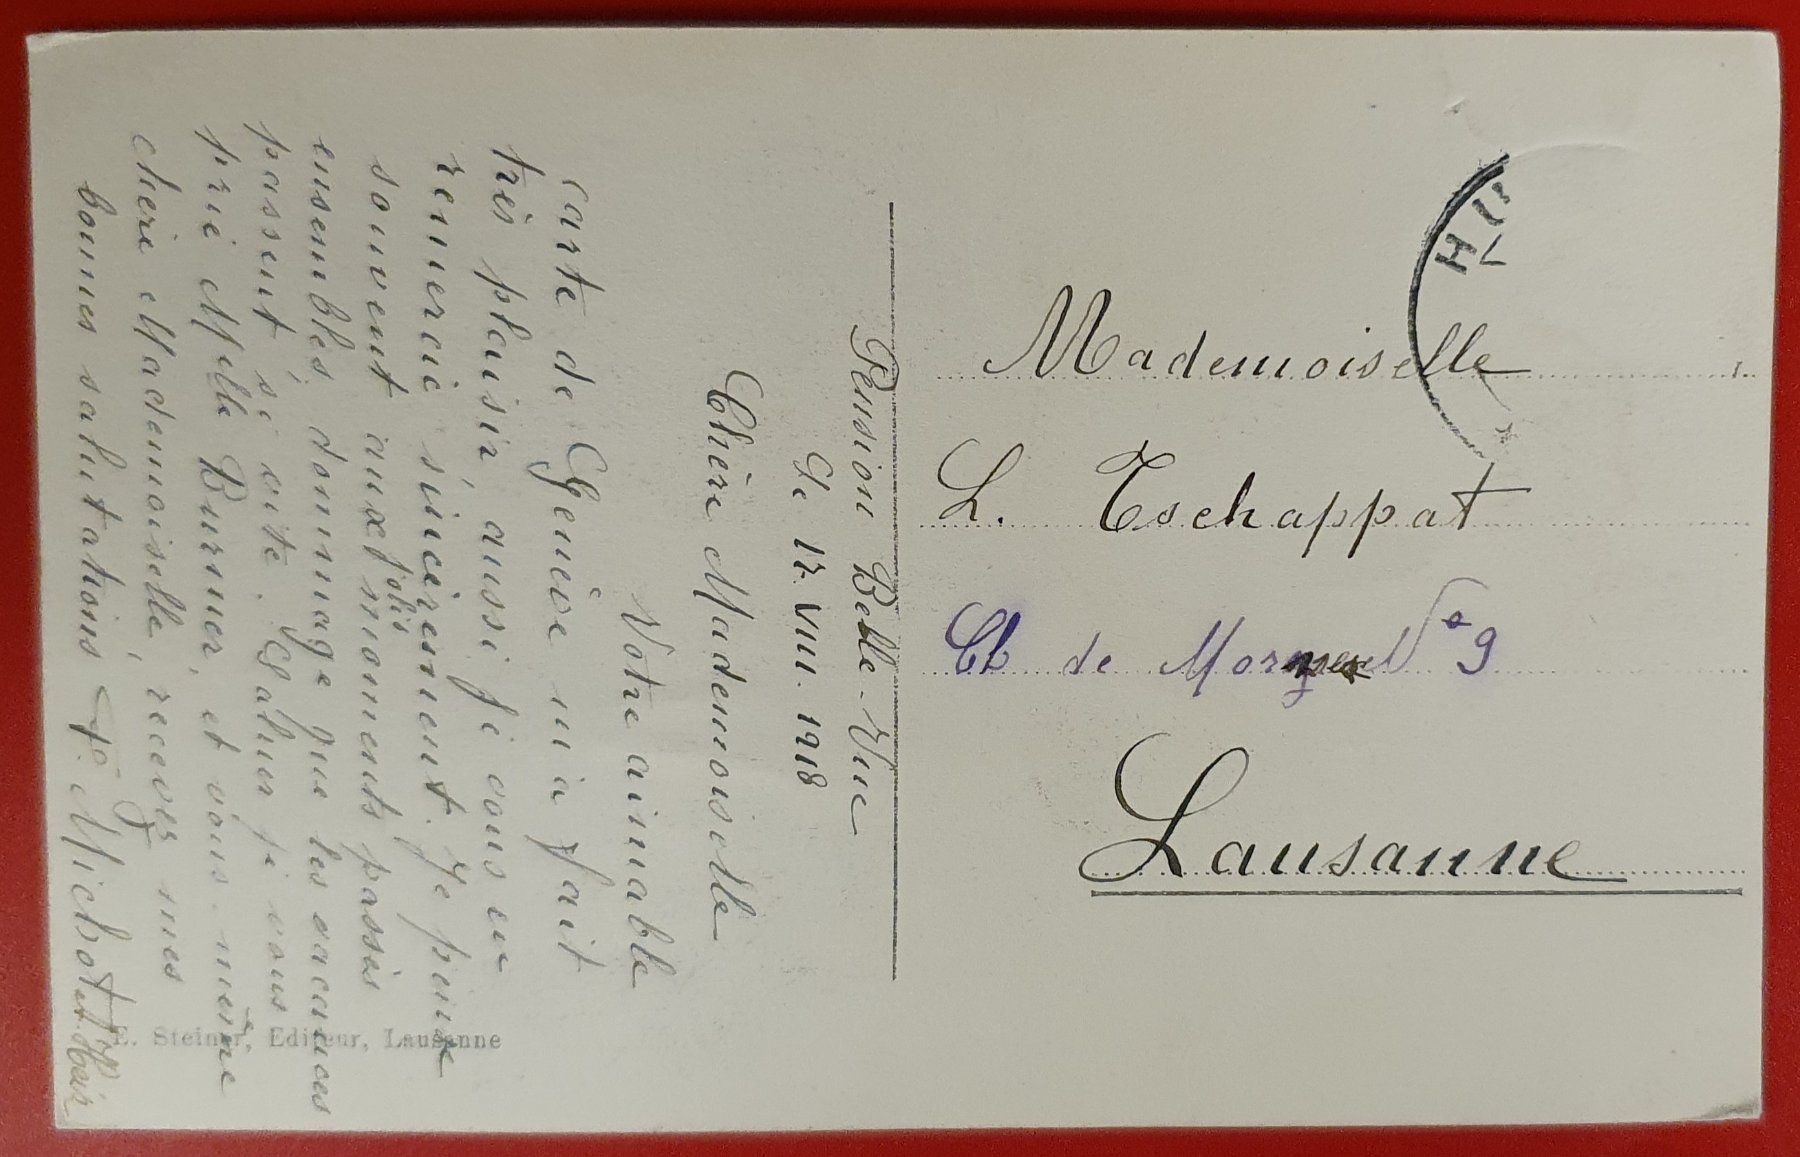 Pension Belle-Vue
Le 17. VIII. 1918
Chère Mademoiselle
Votre aimable
carte de Genève m'a fait
très plaisir, aussi je vous en
remercie sincèrement. Je pense
souvent aux jolis moments passés
ensembles, dommage que les vacances
passent si vite. Saluer je vous
prie Melle Burnier, et vous-même
chère Mademoiselle, recevez mes
bonnes salutations
Michot
E. Steiner, Editeur, Lausanne
Mademoiselle
L. Tschappat
Ch de Mornex No 9
Lausanne